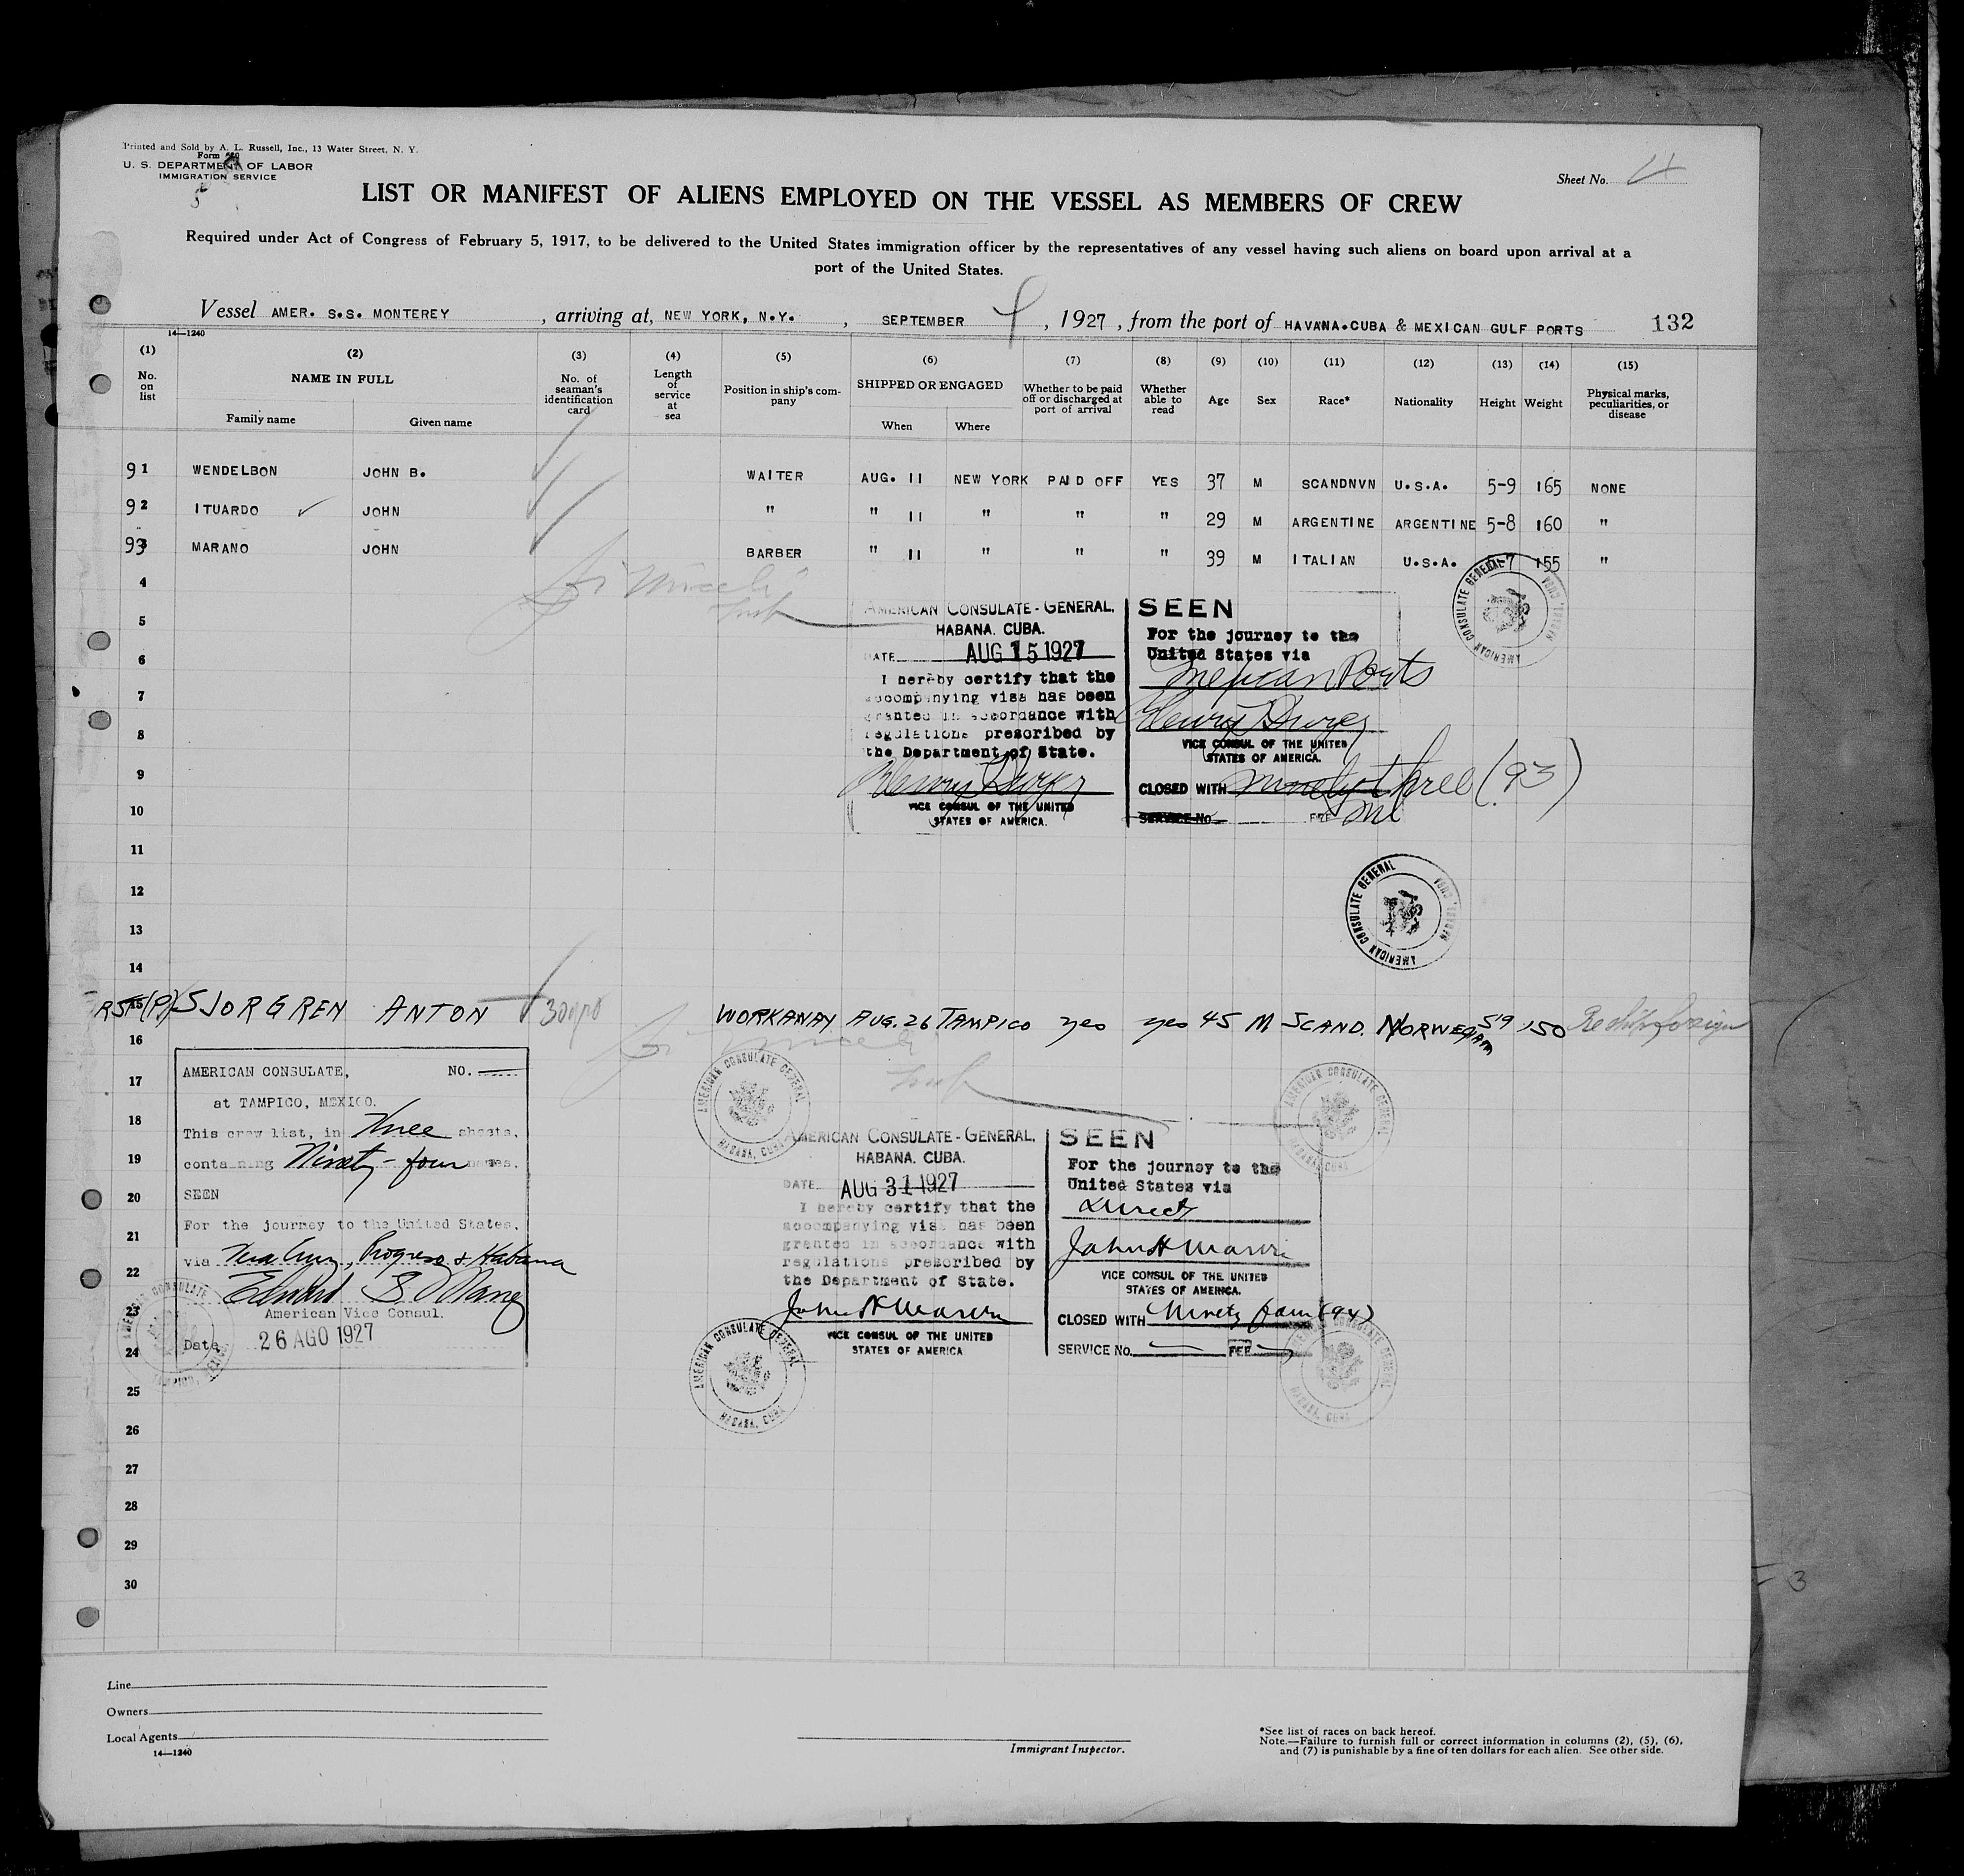 Printed and Sold by A. L. Russell, Inc., 13 Water Street, N. Y.
Form
U. S. DEPARTMENT OF LABOR
IMMIGRATION SERVICE
Sheet No. 4
LIST OR MANIFEST OF ALIENS EMPLOYED ON THE VESSEL AS MEMBERS OF CREW
Required under Act of Congress of February 5, 1917, to be delivered to the United States immigration officer by the representatives of any vessel having such aliens on board upon arrival at a
port of the United States.
Vessel AMER. S.S. MONTEREY, arriving at, NEW YORK, N.Y., SEPTEMBER, 1927, from the port of HAVANA.CUBA & MEXICAN GULF PORTS 132
14—1240
(1) (2) (3) (4) (5) (6) (7) (8) (9) (10) (11) (12) (13) (14) (15)
No. on list NAME IN FULL Family name Given name No. of seaman's identification card Length of service at sea Position in ship's company SHIPPED OR ENGAGED When Where Whether to be paid off or discharged at port of arrival Whether able to read Age Sex Race* Nationality Height Weight Physical marks, peculiarities, or disease
91 WENDELBON JOHN B. WAITER AUG. 11 NEW YORK PAID OFF YES 37 M SCANDNVN U.S.A. 5-9 165 NONE
92 ITUARDO JOHN " " 11 " " " 29 M ARGENTINE ARGENTINE 5-8 160 "
93 MARANO JOHN BARBER " 11 " " " 39 M ITALIAN U.S.A. 5-7 155 "
4
5
6
7
8
9
10
AMERICAN CONSULATE-GENERAL,
HABANA. CUBA.
DATE AUG 15 1927
I hereby certify that the
accompanying visa has been
granted in accordance with
regulations prescribed by
the Department of State.
VICE CONSUL OF THE UNITED
STATES OF AMERICA.
SEEN
For the journey to the
United States via
Mexican Ports
VICE CONSUL OF THE UNITED
STATES OF AMERICA.
CLOSED WITH ninety three (93)
SERVICE No. FEE
AMERICAN CONSULATE GENERAL HABANA, CUBA
11
12
13
14
AMERICAN CONSULATE GENERAL HABANA, CUBA
15 SJORGREN ANTON WORKAWAY AUG. 26 TAMPICO yes yes 45 M SCAND. NORWEGIAN 5'9 150 Reship foreign
16
17
18
19
20
21
22
23
24
AMERICAN CONSULATE, NO.
at TAMPICO, MEXICO.
This crew list, in Three sheets,
containing Ninety-four names.
SEEN
For the journey to the United States,
via Vera Cruz, Progreso & Habana
American Vice Consul.
Date 26 AGO 1927
AMERICAN CONSULATE GENERAL HABANA, CUBA
AMERICAN CONSULATE-GENERAL,
HABANA. CUBA.
DATE AUG 31 1927
I hereby certify that the
accompanying visa has been
granted in accordance with
regulations prescribed by
the Department of State.
VICE CONSUL OF THE UNITED
STATES OF AMERICA
SEEN
For the journey to the
United States via
Direct
VICE CONSUL OF THE UNITED
STATES OF AMERICA.
CLOSED WITH Ninety four (94)
SERVICE No. FEE
AMERICAN CONSULATE GENERAL HABANA, CUBA
25
26
27
28
29
30
3
Line
Owners
Local Agents
14—1240
Immigrant Inspector.
*See list of races on back hereof.
Note.—Failure to furnish full or correct information in columns (2), (5), (6),
and (7) is punishable by a fine of ten dollars for each alien. See other side.